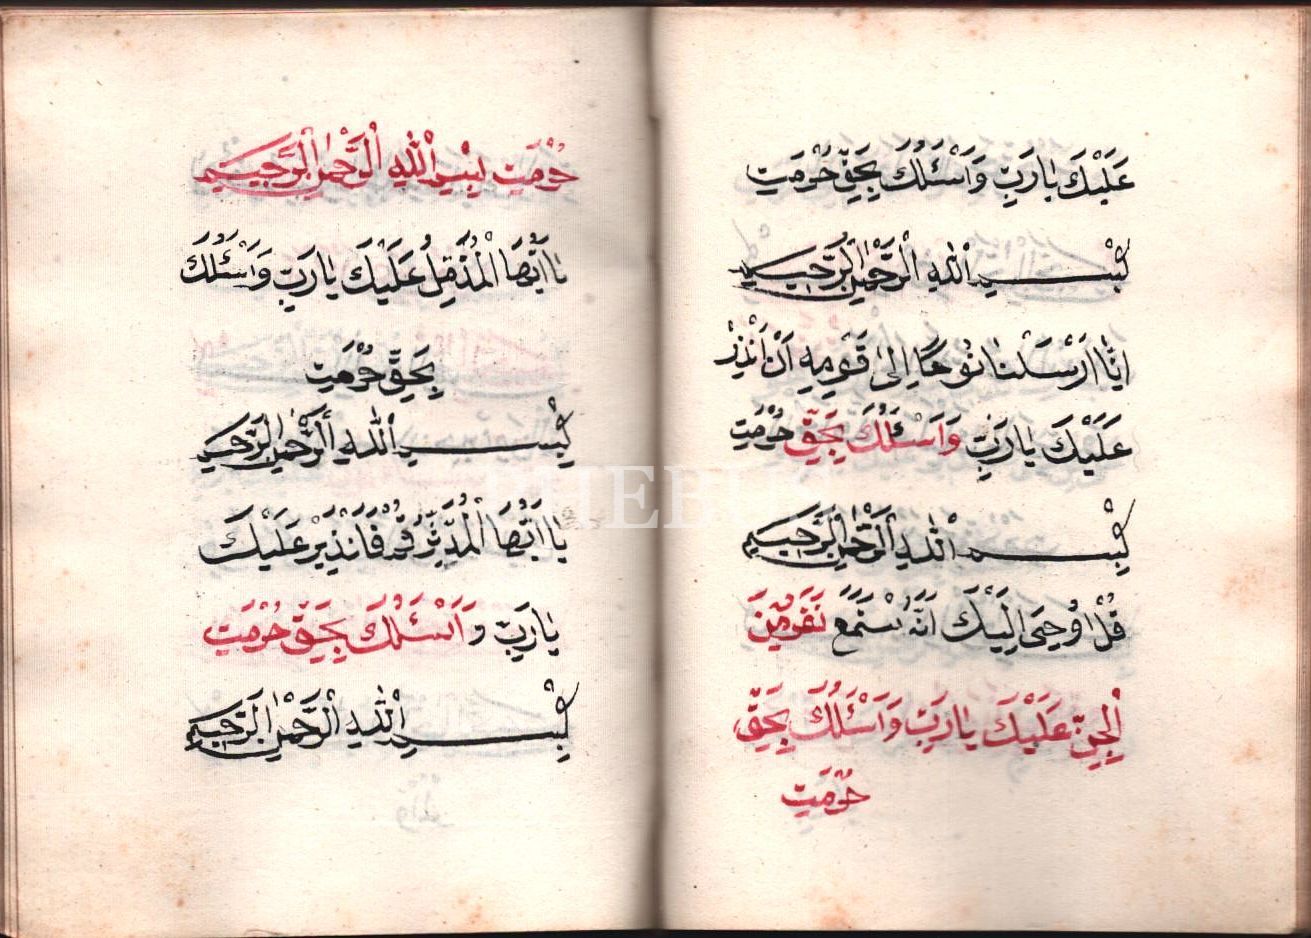 عَلَيْكَ يَارَبِّ وَاَسْئَلُكَ بِحَقِّ حُرْمَتِ
بِسْمِ اللّٰهِ الرَّحْمٰنِ الرَّحِيمِ
اِنَّا اَرْسَلْنَا نُوحًا اِلىٰ قَوْمِهِ اَنْ اَنْذِرْ
عَلَيْكَ يَارَبِّ وَاَسْئَلُكَ بِحَقِّ حُرْمَتِ
بِسْمِ اللّٰهِ الرَّحْمٰنِ الرَّحِيمِ
قُلْ اُوحِىَ اِلَيْكَ اَنَّهُ سْتَمَعَ نَفَرٌ مِنَ
الْجِنِّ عَلَيْكَ يَارَبِّ وَاَسْئَلُكَ بِحَقِّ
حُرْمَتِ
حُرْمَتِ بِسْمِ اللّٰهِ الرَّحْمٰنِ الرَّحِيمِ
يَا اَيُّهَا الْمُذَّمِّلُ عَلَيْكَ يَارَبِّ وَاَسْئَلُكَ
بِحَقِّ حُرْمَتِ
بِسْمِ اللّٰهِ الرَّحْمٰنِ الرَّحِيمِ
يَا اَيُّهَا الْمُدَّثِّرُ قُمْ فَاَنْذِيْرْ عَلَيْكَ
يَارَبِّ وَاَسْئَلُكَ بِحَقِّ حُرْمَتِ
بِسْمِ اللّٰهِ الرَّحْمٰنِ الرَّحِيمِ
PHEBUS